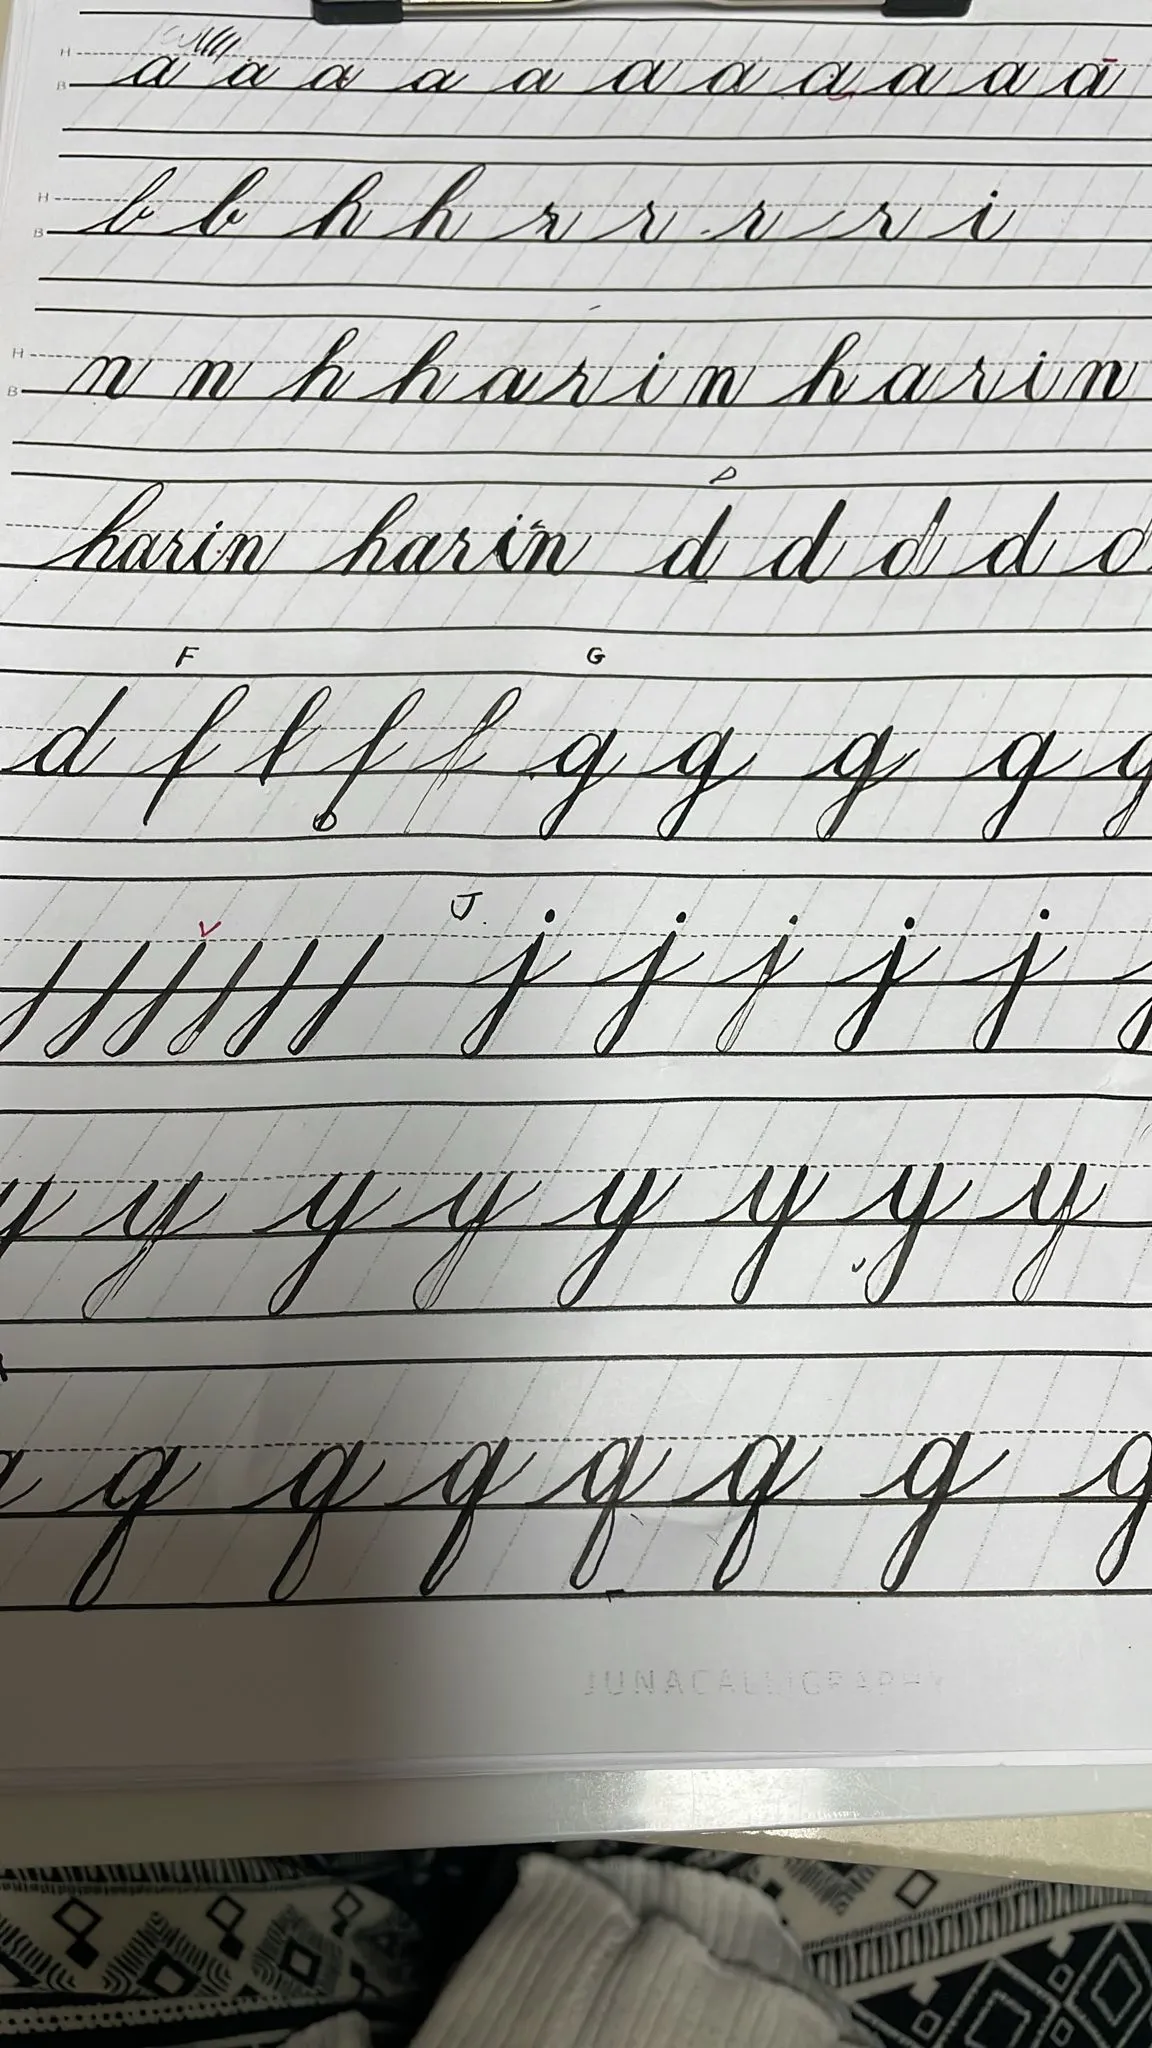 H a a a a a a a a a a a
B
H b b h h r r r r i
B
H n n h h a r i n h a r i n
B
D
harin harin d d d d d
F G
d f f f f g g g g g
J
j j j j j
y y y y y y y y
g q q q q g g
JUNACALLIGRAPHY